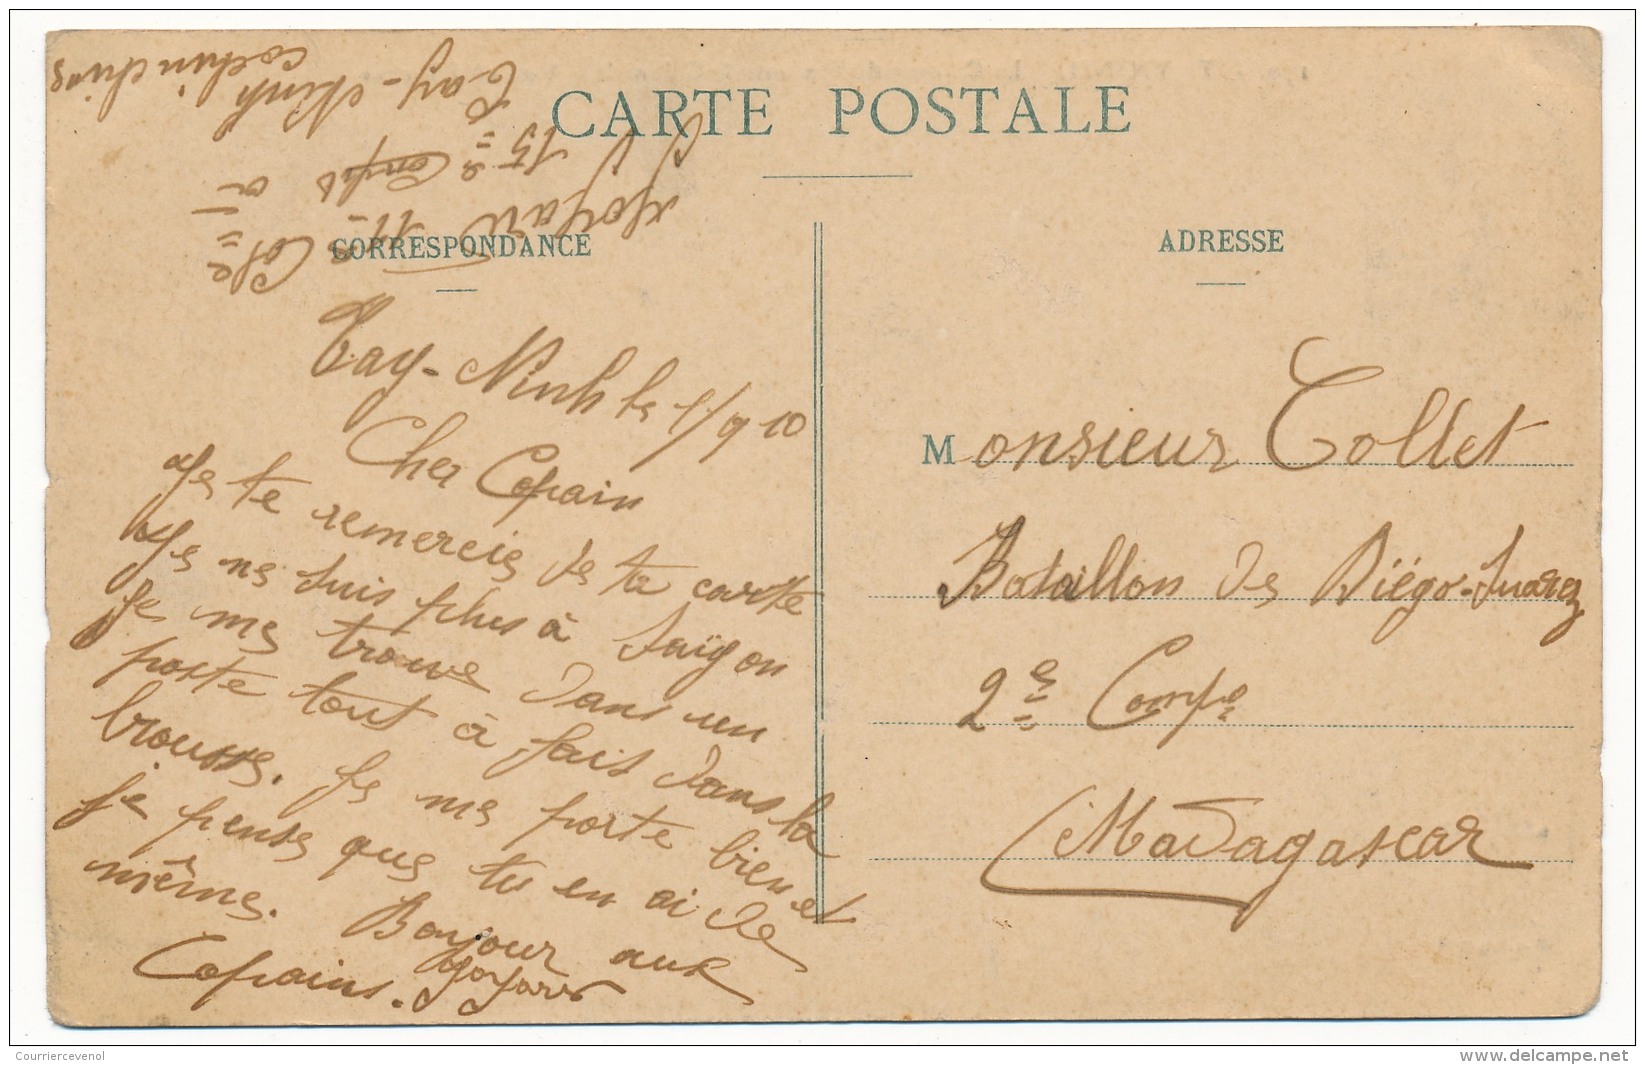 CARTE POSTALE
CORRESPONDANCE
ADRESSE
11e Col
15e Comp
Tay-Ninh
cochinchine
Tay-Ninh le 1/9 10
Cher Copain
Je te remercie de ta carte
Je ne suis plus à Saïgon
Je me trouve dans un
poste tout à fait dans la
brousse. Je me porte bien et
je pense que tu en ai de
même. Bonjour aux
Copains.
Monsieur Collet
Bataillon de Diégo-Suarez
2e Comp
Madagascar
Courriercevenol
www.delcampe.net